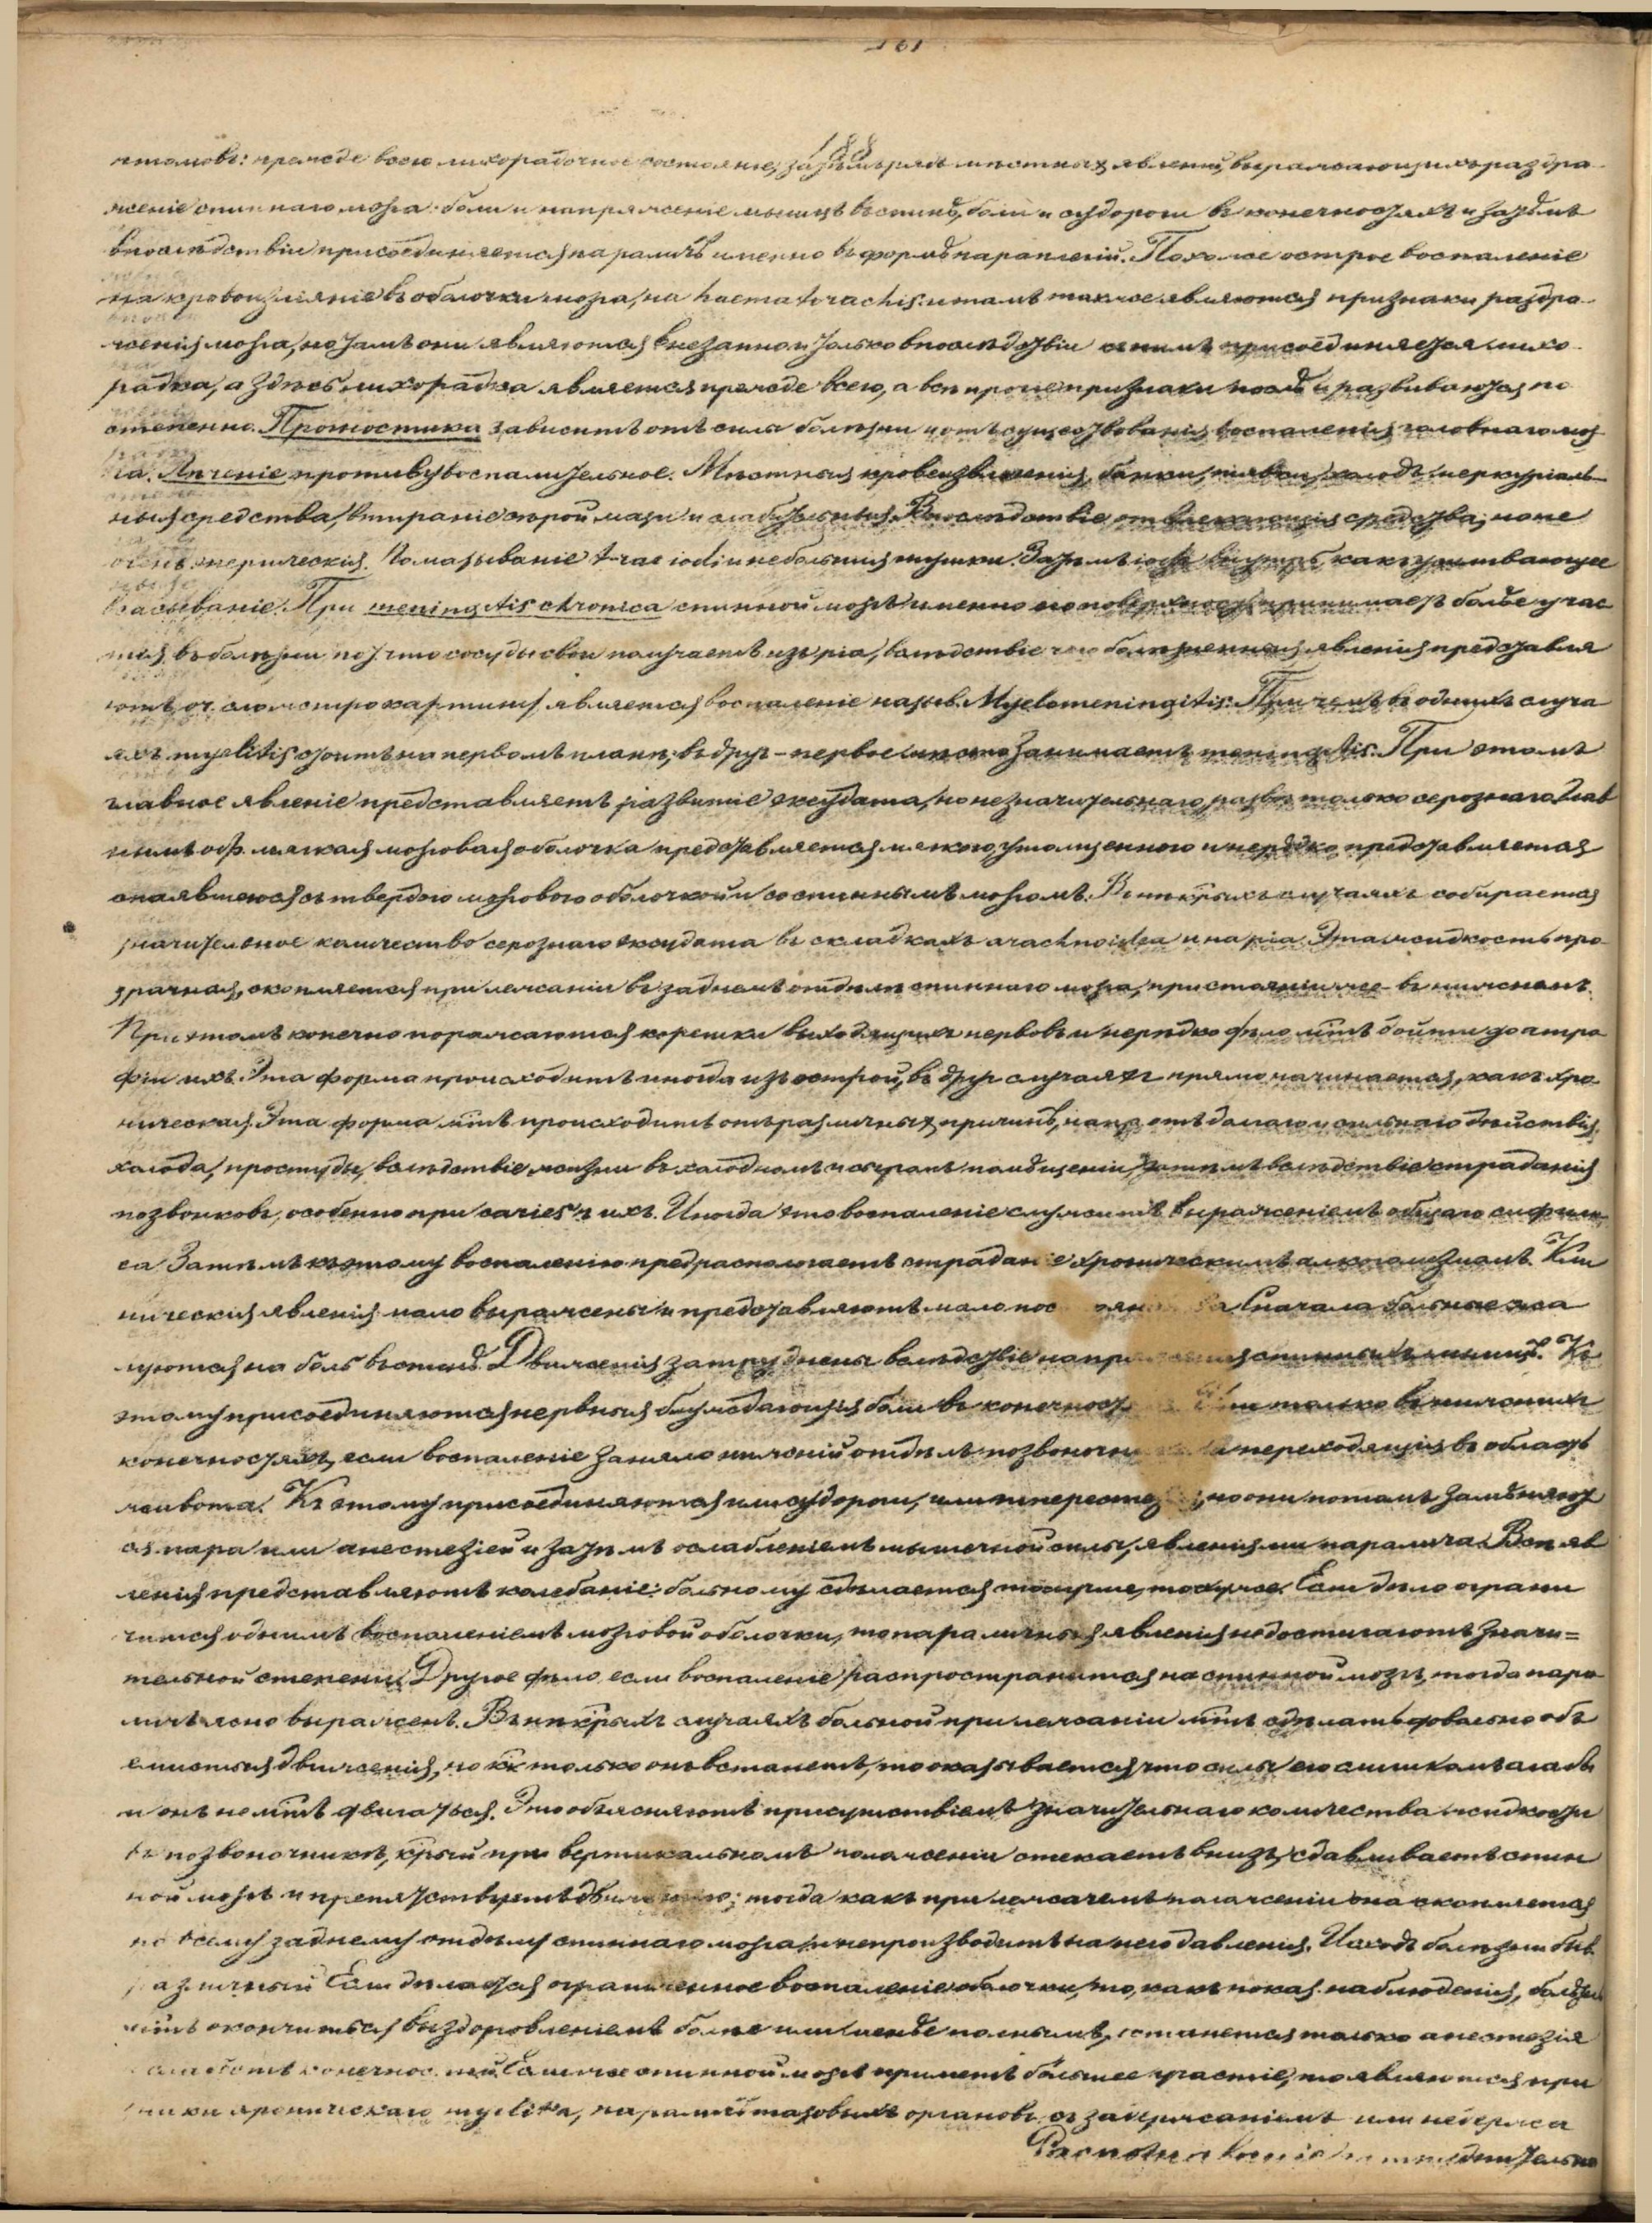 161
188
птомовъ: прежде всего лихорадочное состояніе, затѣмъ рядъ мѣстныхъ явленій, выражающихъ раздра-
женіе спиннаго мозга: боли и напряженіе мышцъ въ спинѣ, боли и судороги въ конечностяхъ и затѣмъ
впослѣдствіи присоединяется параличъ именно въ формѣ параплегіи. Похоже острое воспаленіе
на кровоизліяніе въ оболочки мозга, на haematorachis: и тамъ также являются признаки раздра-
женія мозга, но тамъ они являются внезапно и только впослѣдствіи къ нимъ присоединяется лихо-
радка, а здѣсь лихорадка является прежде всего, а всѣ прочіе признаки послѣ и развиваются по
степенно. Прогностика зависитъ отъ силы болѣзни и отъ существованія воспаленія головнаго моз
га. Лѣченіе противувоспалительное. Мѣстныя кровеизвлеченія, банки, піявки, холодъ, меркуріаль-
ныя средства, втираніе сѣрой мази и слабительныя. Впослѣдствіе отвлекающія средства, но не
очень энергическія. Помазываніе t-rae iodi и небольшія мушки. Затѣмъ іодъ внутрь какъ усиливающее
всасываніе. При meningitis chronica спинной мозгъ именно его поверхность принимаетъ болѣе учас
тія въ болѣзни, пот. что сосуды свои получаетъ изъ pia, вслѣдствіе чего болѣзненныя явленія представля
ютъ оч. сложную картину, является воспаленіе назыв. Myelomeningitis. При чемъ въ однихъ случа
яхъ myelitis стоитъ на первомъ планѣ, въ друг. - первое мѣсто занимаетъ meningitis. При этомъ
главное явленіе представляетъ развитіе эксудата, но незначительнаго, разве только серознаго. Глав
нымъ обр. мягкая мозговая оболочка представляется мягкою, утолщенною и нерѣдко представляется
спаявшеюся съ твердою мозговою оболочкой и со спиннымъ мозгомъ. Въ нѣкрыхъ случаяхъ собирается
значительное количество серознаго эксудата въ складкахъ arachnoidea и на pia. Эта жидкость про-
зрачная, скопляется при лежаніи въ заднемъ отдѣлѣ спиннаго мозга, при стояніи же - въ нижнемъ.
При этомъ конечно поражаются корешки выходящихъ нервовъ и нерѣдко дѣло мжтъ дойти до атро
фіи ихъ. Эта форма происходитъ иногда изъ острой, въ друг. случаяхъ прямо начинается, какъ хро
ническая. Эта форма мжтъ происходить отъ различныхъ причинъ, напр. отъ долгаго и сильнаго дѣйствія
холода, простуды, вслѣдствіе жизни въ холодномъ и сыромъ помѣщеніи, затѣмъ вслѣдствіе страданія
позвонковъ, особенно при caries'ѣ ихъ. Иногда это воспаленіе служитъ выраженіемъ общаго сифили
са. Затѣмъ къ этому воспаленію предрасполагаетъ страданіе хроническимъ алкоголизмомъ. Кли
ническія явленія мало выражены и представляютъ мало пос Сначала больные жа
луются на боль въ спинѣ. Движенія затруднены вслѣдствіе напряженія спинныхъ мышцъ. Къ
этому присоединяются нервныя блуждающія боли въ конечност или только въ нижнихъ
конечностяхъ, если воспаленіе заняло нижній отдѣлъ позвоночни переходящія въ область
живота. Къ этому присоединяются или судороги, или гиперестезіи, но они потомъ замѣняют
ся пара или анестезіей и затѣмъ ослабленіемъ мышечной силы, явленіями паралича. Всѣ яв
ленія представляютъ колебаніе: больному сдѣлается то лучше, то хуже. Если дѣло ограни
чится однимъ воспаленіемъ мозговой оболочки, то параличныя явленія не достигаютъ значи=
тельной степени. Другое дѣло, если воспаленіе распространится на спинной мозгъ, тогда пара
личъ ясно выраженъ. Въ нѣкрыхъ случаяхъ больной при лежаніи мжтъ сдѣлать довольно объ
емистыя движенія, но кк только онъ встанетъ, то оказывается что силы его слишкомъ слабы
и онъ не мжтъ двигаться. Это объясняютъ присутствіемъ значительнаго количества жидкости
въ позвоночникѣ, крый при вертикальномъ положеніи стекаетъ внизъ, сдавливаетъ спин
ной мозгъ и препятствуетъ движенію; тогда какъ при лежачемъ положеніи она скопляется
по всему заднему отдѣлу спиннаго мозга и не производитъ на него давленія. Исходъ болѣзни быв.
различный. Если дѣлается ограниченное воспаленіе оболочки, то, какъ показ. наблюденія, болѣзнь
мжтъ окончиться выздоровленіемъ болѣе или менѣе полнымъ, останется только анестезія
слабость конечностей. Если же спинной мозгъ приметъ большее участіе, то являются при
знаки хроническаго myelit'а, параличъ тазовыхъ органовъ съ задержаніемъ или недержа
Распознаваніе